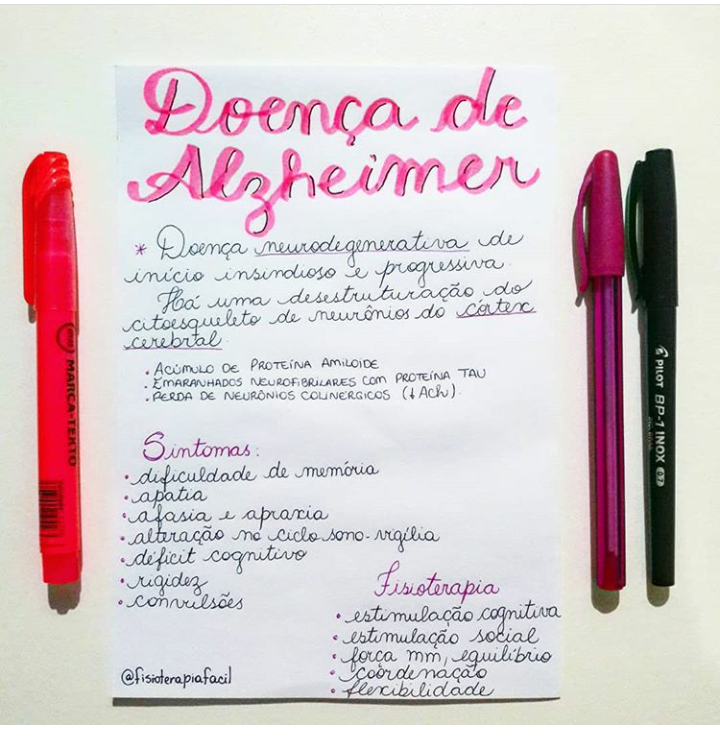 Doença de
Alzheimer
* Doença neurodegenerativa de
início insindioso e progressiva.
Há uma desestruturação do
citoesqueleto de neurônios do córtex
cerebral.
• ACÚMULO DE PROTEÍNA AMILOIDE
• EMARANHADOS NEUROFIBRILARES COM PROTEÍNA TAU
• PERDA DE NEURÔNIOS COLINERGICOS (↓ Ach).
Sintomas:
• dificuldade de memória
• apatia
• afasia e apraxia
• alteração no ciclo sono-vigília
• déficit cognitivo
• rigidez
• convulsões
Fisioterapia
• estimulação cognitiva
• estimulação social
• força mm, equilíbrio
• coordenação
• flexibilidade
@fisioterapiafacil
MARCA-TEXTO
PILOT BP-1 INOX 0.7